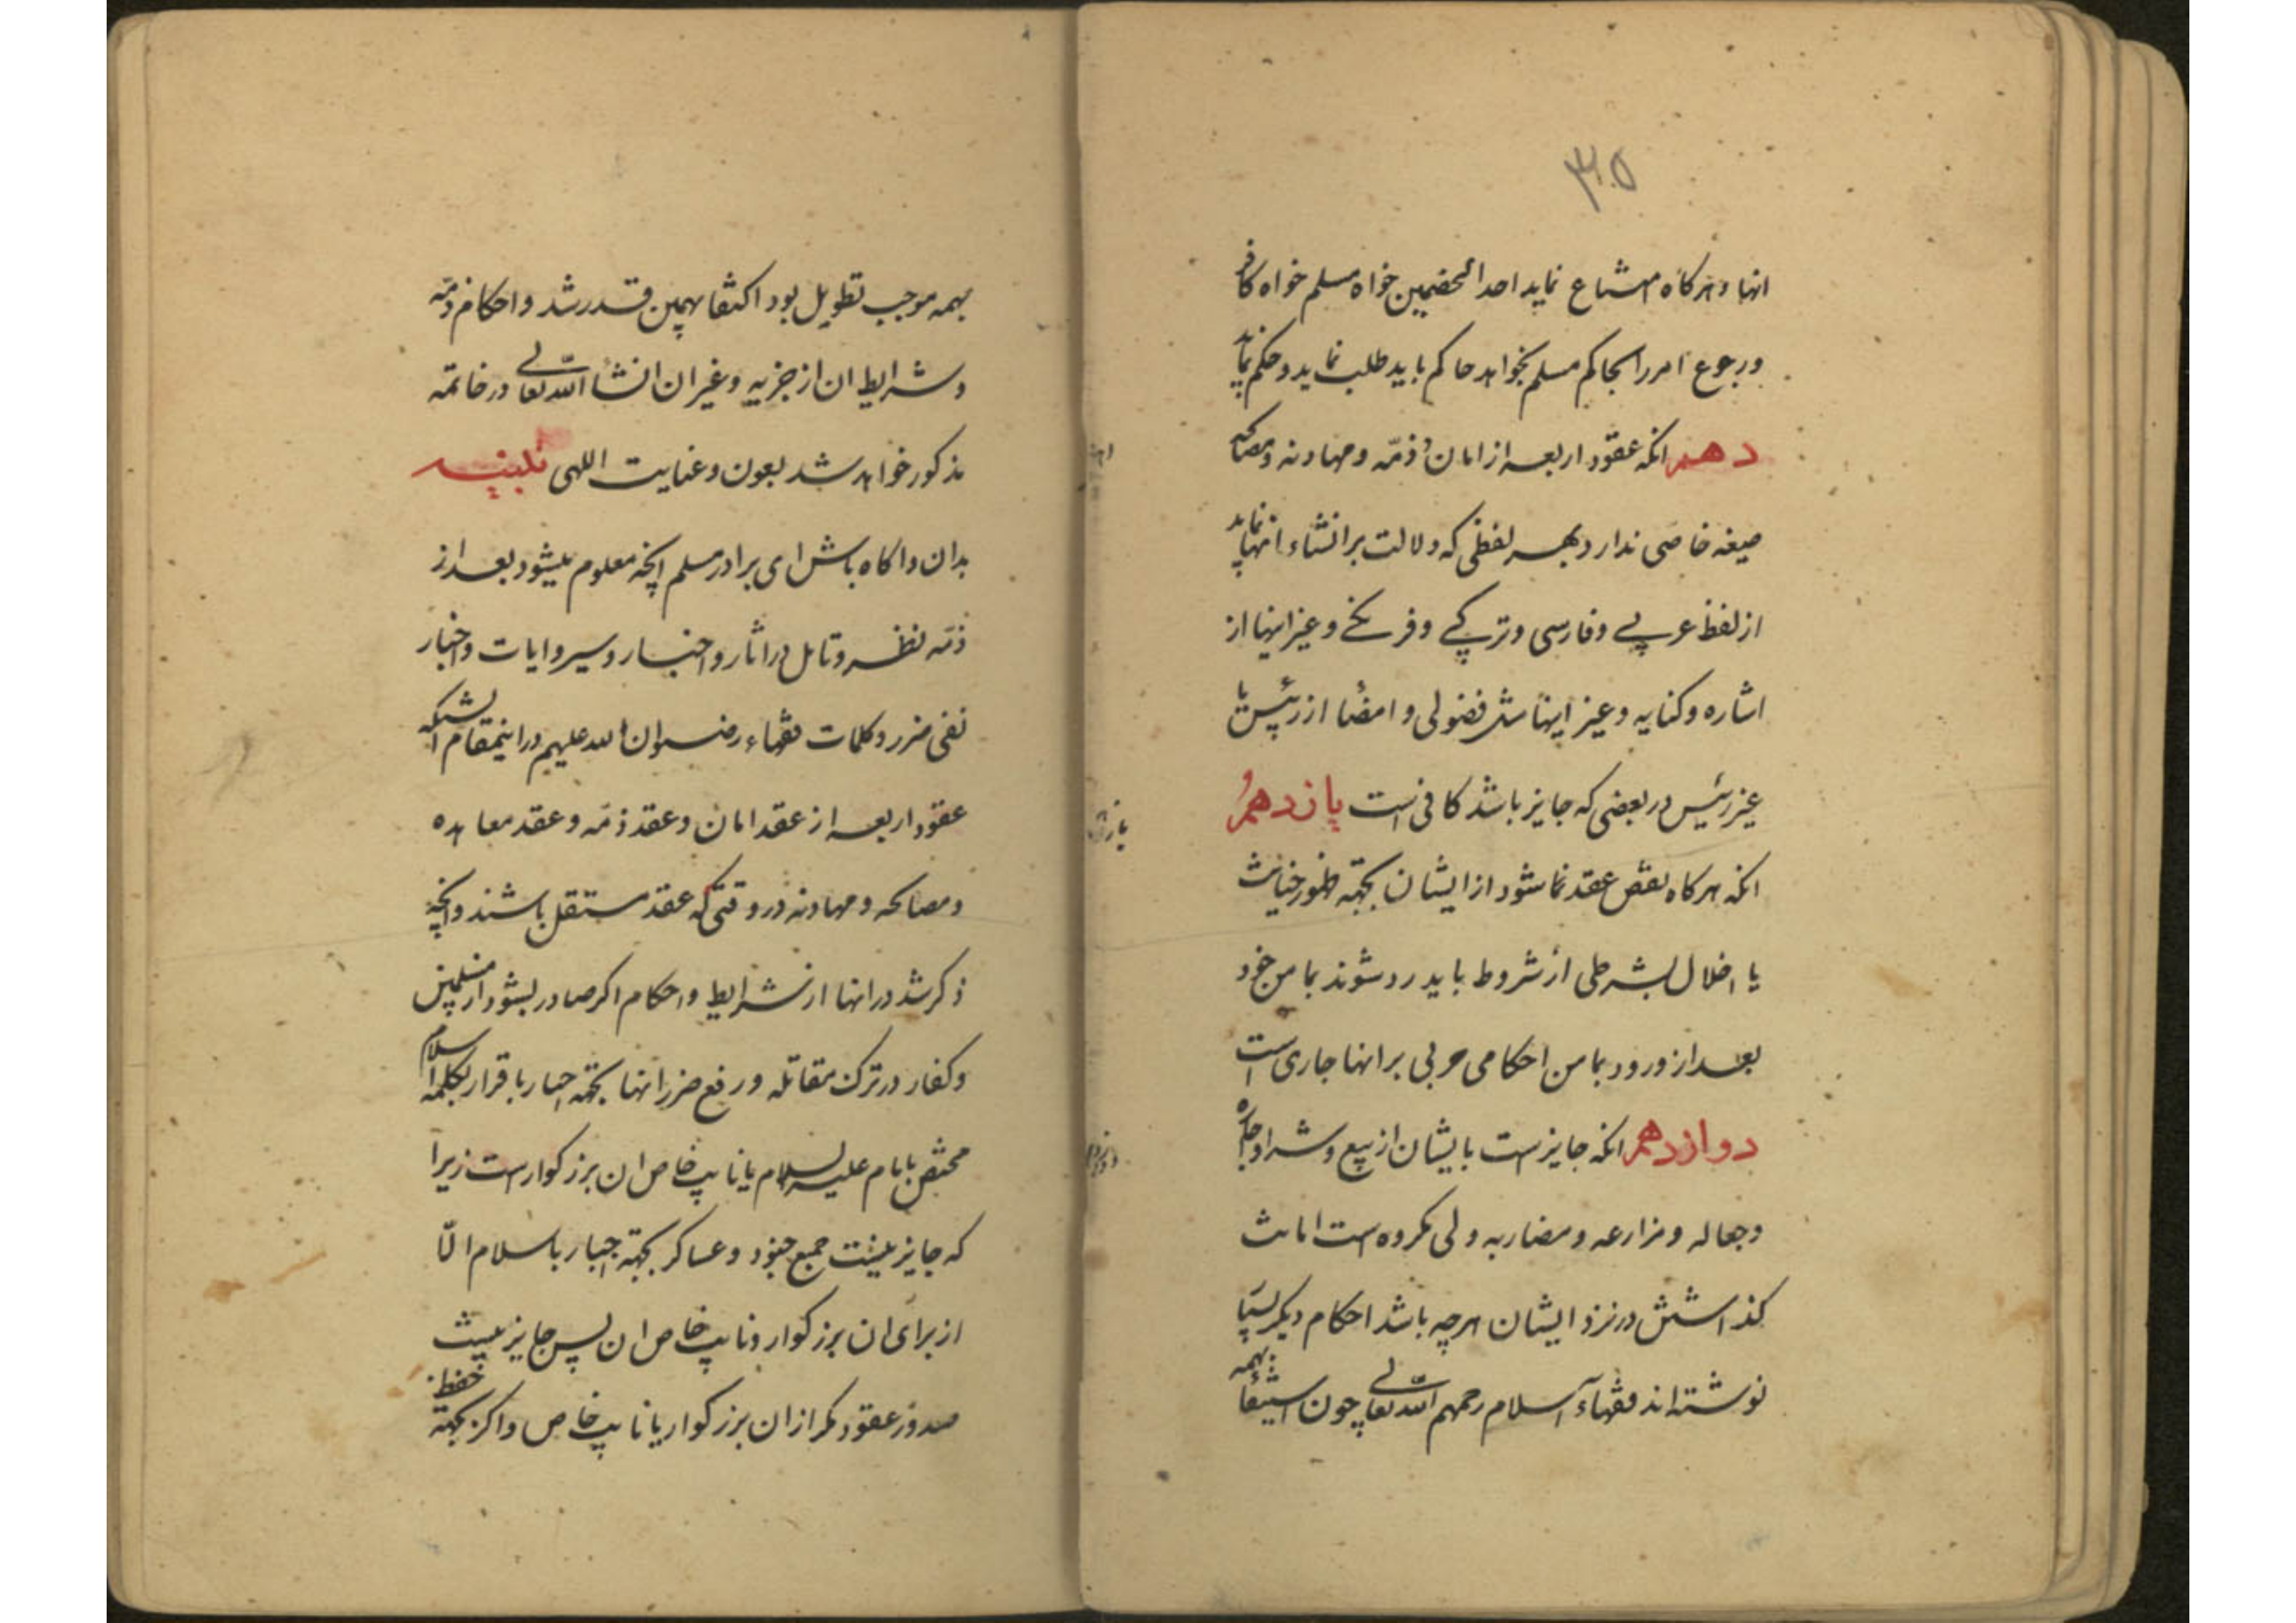 ۳۰۵
انها و هرکاه امتناع نماید احد الخصمین خواه مسلم خواه کافر
و رجوع امر را بحاکم مسلم بخواهد حاکم باید طلب نماید و حکم نماید
دهم انکه عقود اربعه از امان و ذمّه و مهادنه و مصالحه
صیغه خاصی ندارد بهر لفظی که دلالت بر انشاء انها نماید
از لفظ عربی و فارسی و ترکی و فرنکی و غیر اینها از
اشاره و کنایه و غیر اینها مثل فضولی و امضا از رئیس یا
غیر رئیس در بعضی که جایز باشد کافی است یازدهم
انکه هرکاه نقض عقد نما شود از ایشان بجهته ظهور خیانت
یا اخلال بشرطی از شروط باید رد شوند بمامن خود
بعد از ورود بمامن احکامی حربی بر انها جاری است
دوازدهم انکه جایز است بایشان از بیع و شرا و اجاره
و جعاله و مزارعه و مضاربه ولی مکروه است امانت
کذاشتن در نزد ایشان هرچه باشد احکام دیکر بسیا
نوشته اند فقهاء اسلام رحمهم الله تعالی چون استیفا بهمه
بهمه موجب تطویل بود اکتفا بهمین قدر شد و احکام ذمّه
و شرایط ان از جزیه و غیر ان انشا الله تعالی در خاتمه
مذکور خواهد شد بعون و عنایت اللهی تنبیه
بدان و اکاه باش ای برادر مسلم انچه معلوم میشود بعد از
ذمّه نظر و تامل در اثار و اخبار و سیر و ایات و اخبار
نفی ضرر و کلمات فقهاء رضوان الله علیهم در اینمقام انستکه
عقود اربعه از عقد امان و عقد ذمّه و عقد معاهده
و مصالحه و مهادنه در وقتی که عقد مستقل باشند و انچه
ذکر شد در انها از شرایط و احکام اکر صادر بشود از مسلمین
و کفار در ترک مقاتله و رفع ضرر انها بجهته اجبار باقرار بکلمه اسلام
مختص بامام علیه السلام یا نایب خاص ان بزرکوار است زیرا
که جایز نیست جمع جنود و عساکر بجهته اجبار باسلام الّا
از برای ان بزرکوار و نایب خاص ان پس جایز نیست
صدور عقود مکر از ان بزرکوار یا نایب خاص و اکر بجهته حفظ